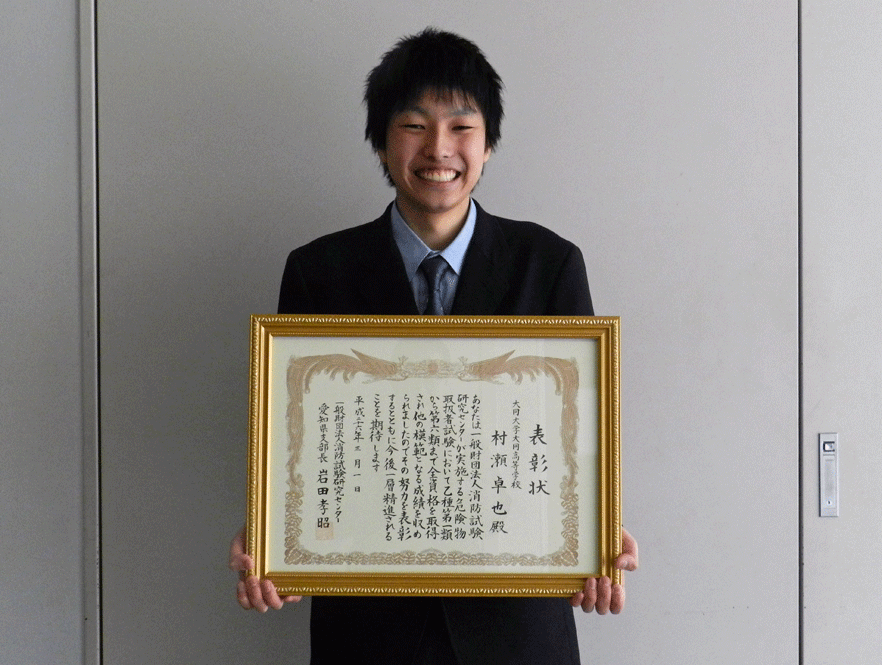 表彰状
大同大学大同高等学校
村瀬卓也殿
あなたは一般財団法人消防試験
研究センターが実施する危険物
取扱者試験において乙種第一類
から第六類まで全資格を取得
され他の模範となる成績を収め
られましたのでその努力を表彰
するとともに今後一層精進される
ことを期待します
平成二十六年三月一日
一般財団法人消防試験研究センター
愛知県支部長 岩田孝昭